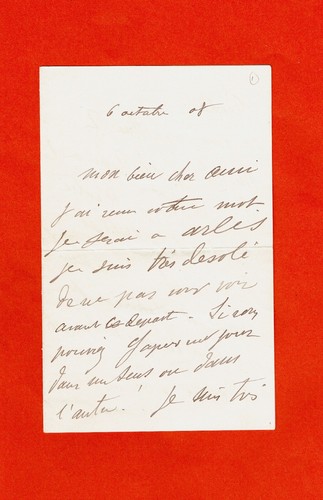 1
6 octobre 08
mon bien cher ami
j'ai reçu votre mot
je serai a arles
je suis très desolé
de ne pas vous voir
avant ce depart. Si vous
pouviez gagner un jour
dans un sens ou dans
l'autre! je suis très